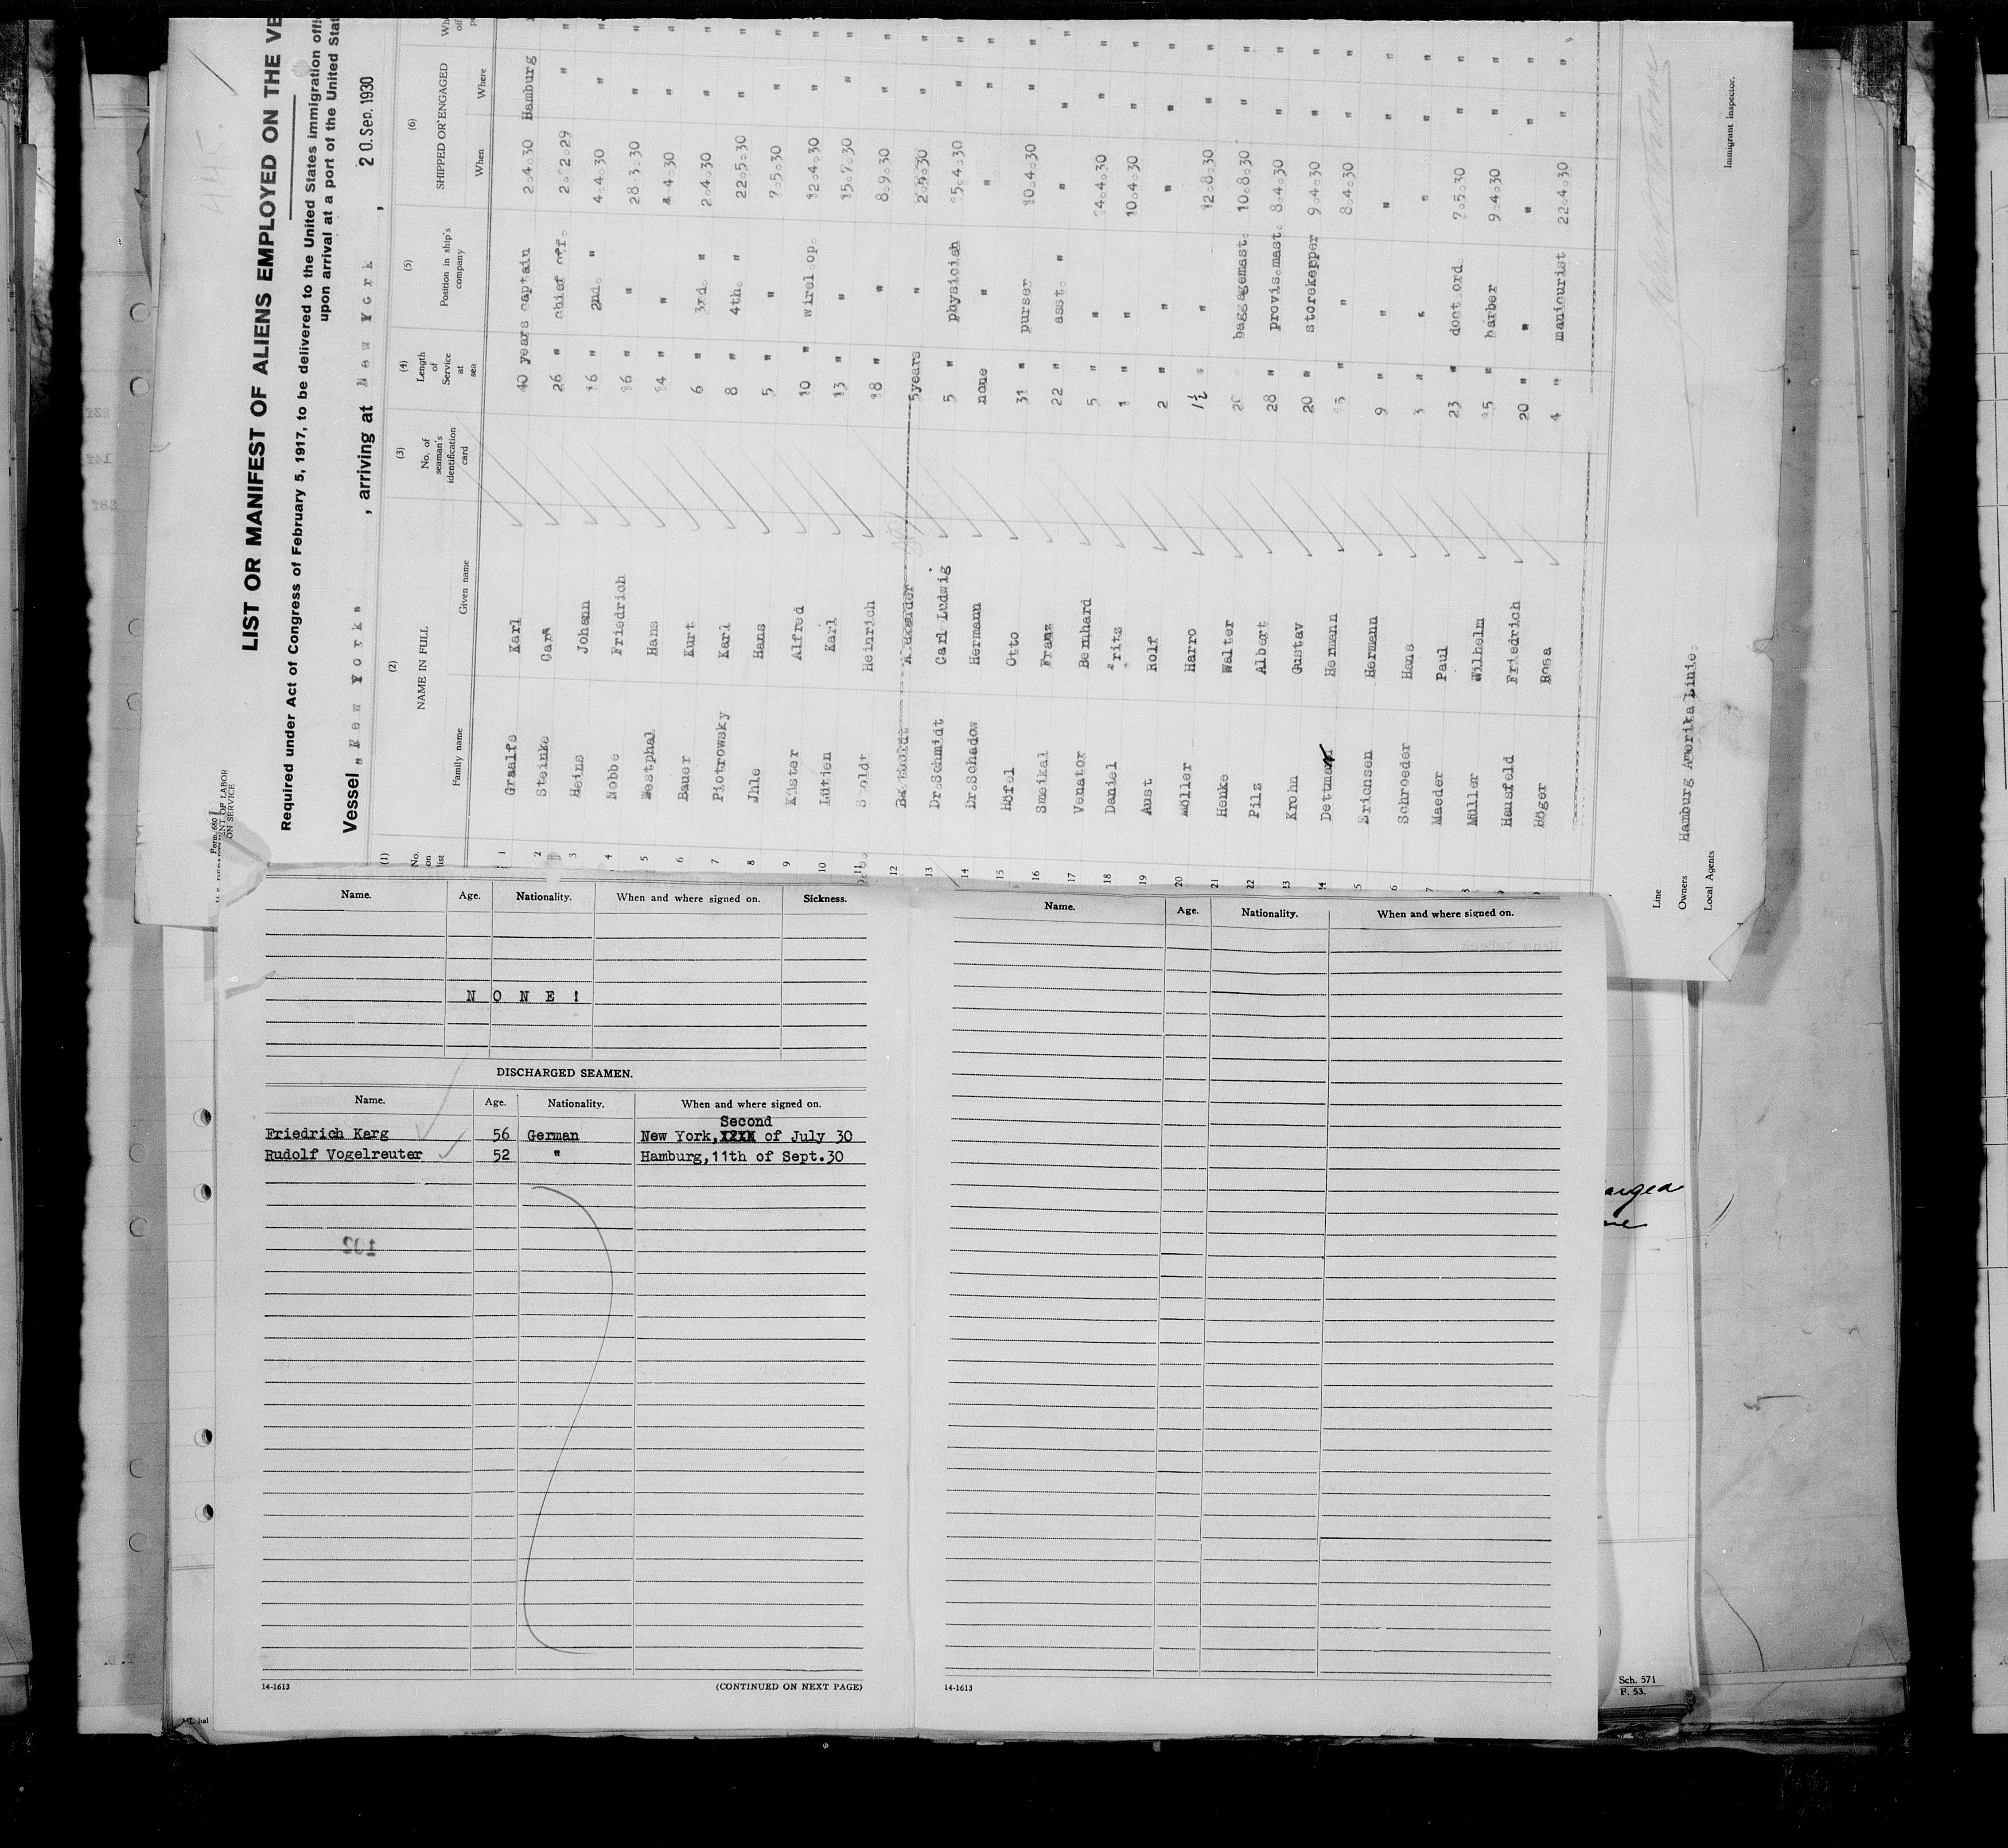 LIST OR MANIFEST OF ALIENS EMPLOYED ON THE VE
Required under Act of Congress of February 5, 1917, to be delivered to the United States immigration offi
upon arrival at a port of the United Stat
Vessel „New York" , arriving at New York , 20. Sep. 1930
(1) (2) (3) (4) (5) (6)
No. on list NAME IN FULL No. of seaman's identification card Length of Service at sea Position in ship's company SHIPPED OR ENGAGED
Family name Given name When Where
1 Graalfs Karl 40 years captain 2.4.30 Hamburg
2 Steinke Carl 26 " chief off. 2.2.29 "
3 Heins Johann 16 " 2nd. " 4.4.30 "
4 Nobbe Friedrich 16 " " 28.3.30 "
5 Westphal Hans 14 " " 4.4.30 "
6 Bauer Kurt 6 " 3rd. " 2.4.30 "
7 Piotrowsky Karl 8 " 4th. " 22.5.30 "
8 Jhle Hans 5 " " 7.5.30 "
9 Küster Alfred 10 " wirel.op. 12.4.30 "
10 Lütjen Karl 13 " " 15.7.30 "
11 Stoldt Heinrich 18 " " 8.9.30 "
12 Alexander 5 years " 2.9.30 "
13 Dr.Schmidt Carl Ludwig 5 " physician 15.4.30 "
14 Dr.Schadow Hermann none " " "
15 Höfel Otto 31 " purser 10.4.30 "
16 Smeikal Franz 22 " asst. " " "
17 Venator Bernhard 5 " " 14.4.30 "
18 Daniel Fritz 1 " " 10.4.30 "
19 Aust Rolf 2 " " " "
20 Möller Harro 1½ " " 12.8.30 "
21 Henke Walter 20 baggagemast. 10.8.30 "
22 Pilz Albert 28 " provis.mast. 8.4.30 "
23 Krohn Gustav 20 " storekepper 9.4.30 "
24 Dettmann Hermann 15 " " 8.4.30 "
5 Erichsen Hermann 9 " " " "
6 Schroeder Hans 3 " " " "
7 Maeder Paul 23 " doct.ord. 7.5.30 "
8 Müller Wilhelm 15 " barber 9.4.30 "
9 Hausfeld Friedrich 20 " " " "
Höger Rosa 4 " manicurist 22.4.30 "
Line
Owners Hamburg Amerika Linie.
Local Agents
Immigrant inspector.
Name. Age. Nationality. When and where signed on. Sickness.
NONE!
DISCHARGED SEAMEN.
Name. Age. Nationality. When and where signed on.
Second
Friedrich Karg 56 German New York, XXXX of July 30
Rudolf Vogelreuter 52 " Hamburg,11th of Sept.30
102
14-1613 (CONTINUED ON NEXT PAGE)
Name. Age. Nationality. When and where signed on.
14-1613
Sch. 571
F. 53.